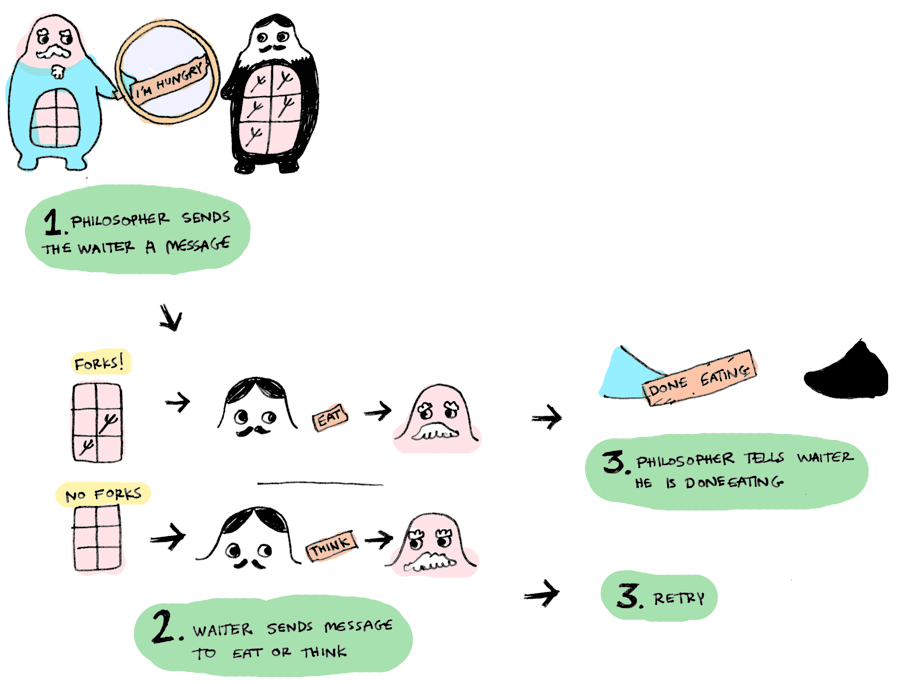 I'M HUNGRY
1. PHILOSOPHER SENDS
THE WAITER A MESSAGE
FORKS!
EAT
NO FORKS
THINK
2. WAITER SENDS MESSAGE
TO EAT OR THINK
DONE EATING
3. PHILOSOPHER TELLS WAITER
HE IS DONE EATING
3. RETRY